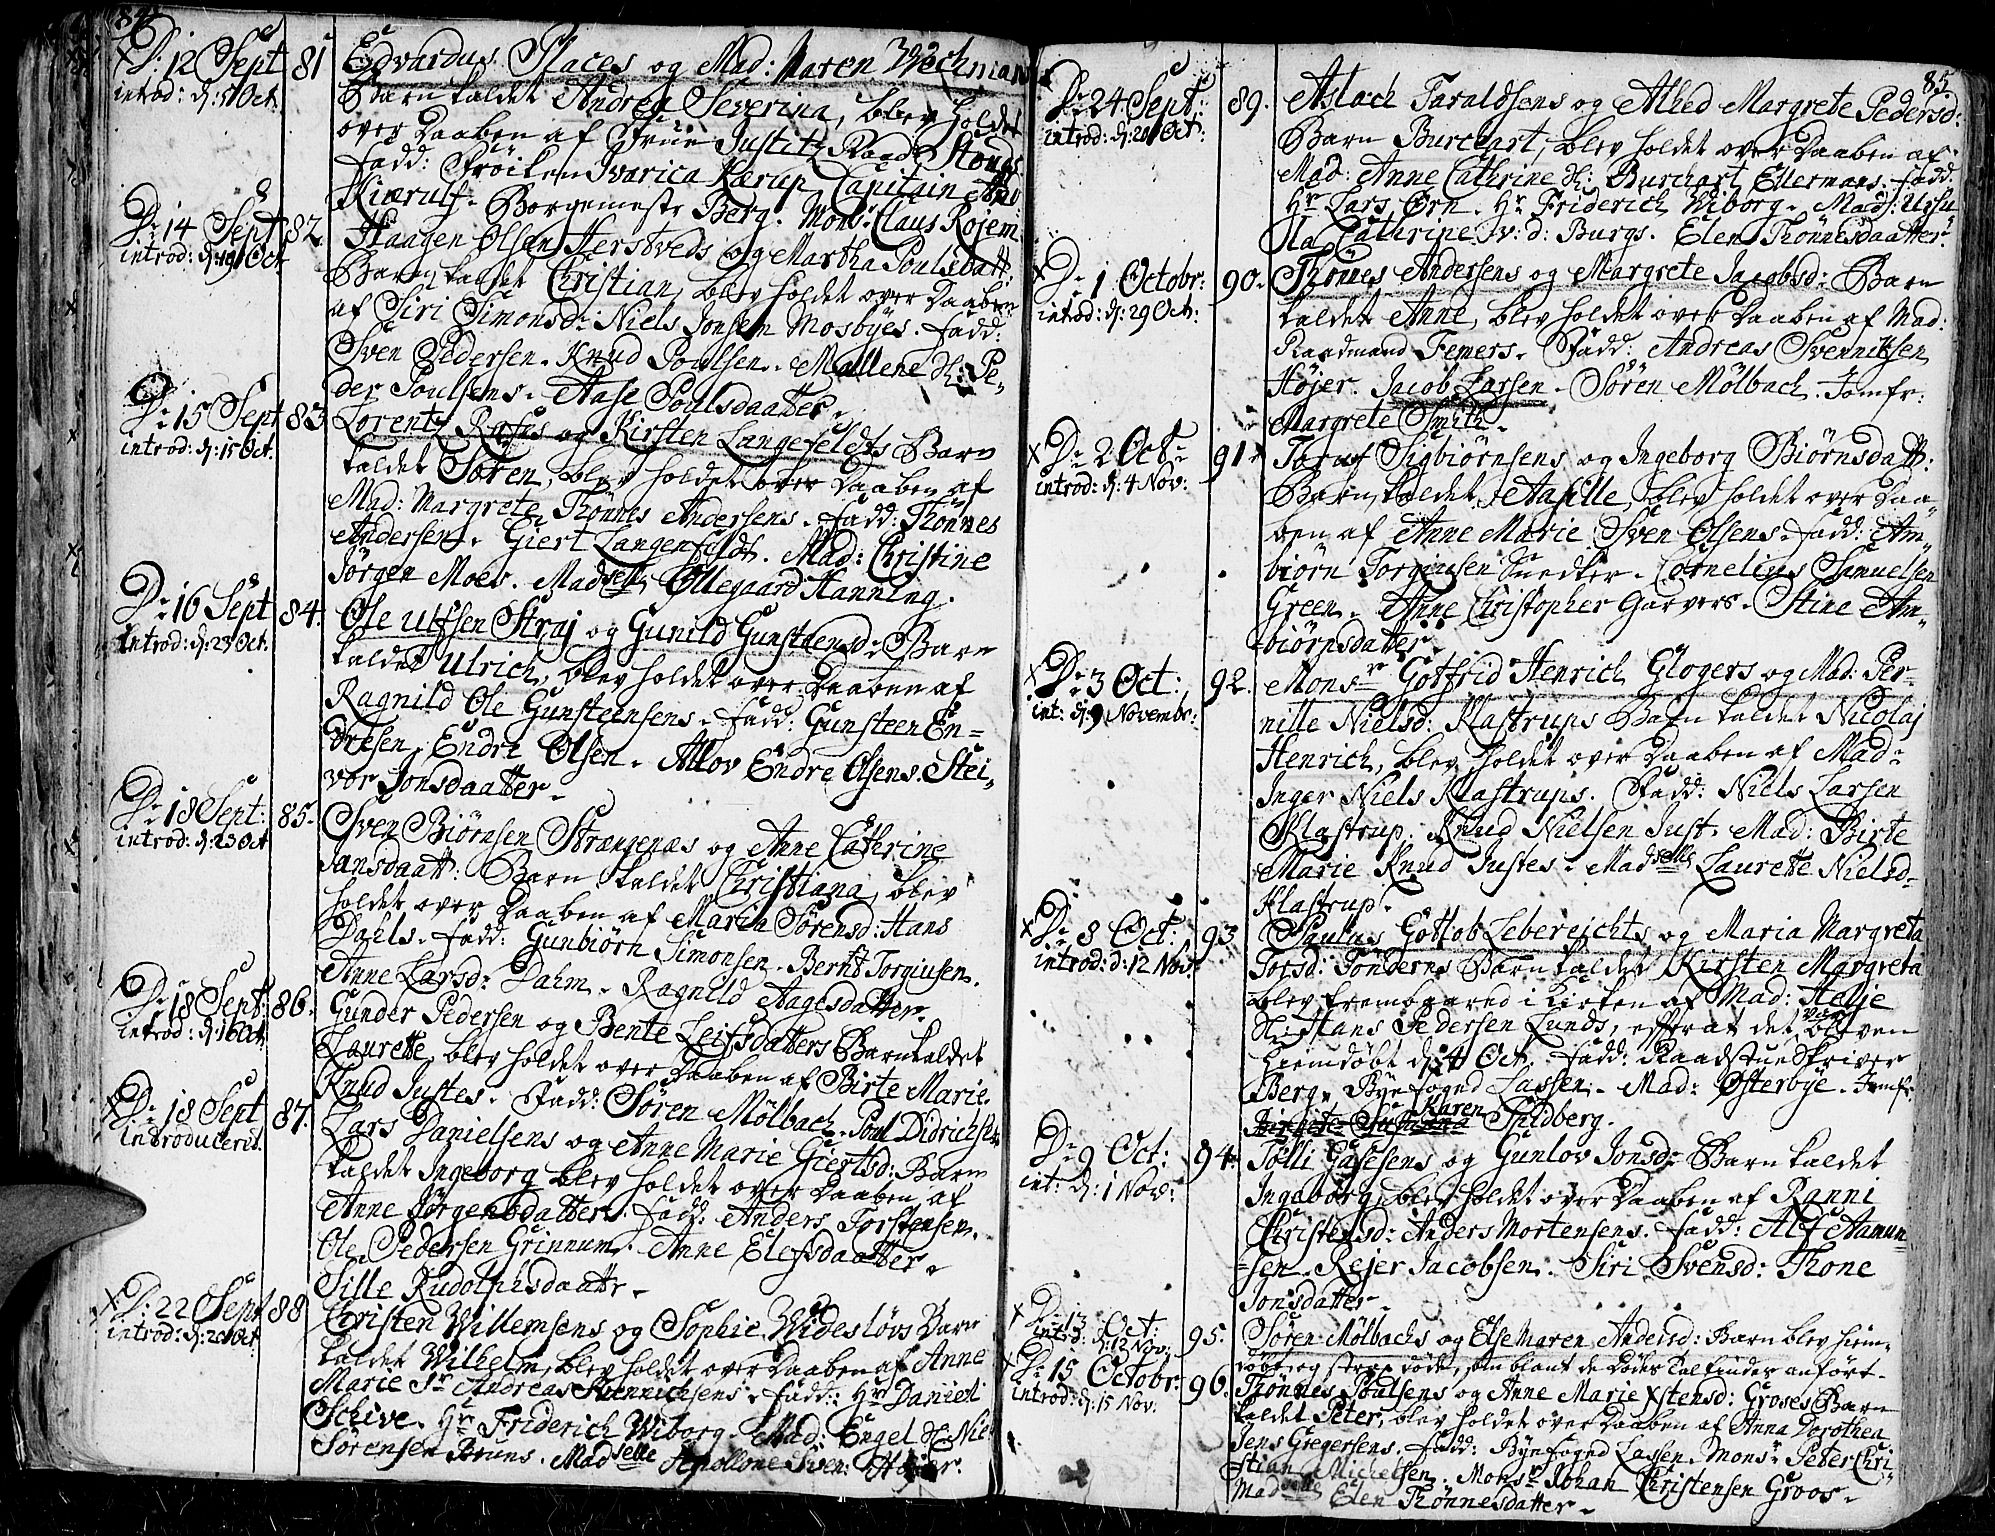 84
D: 12 Sept 81 Edvardus Places og Mad: Maren Wechmans
introd: d: 5 Oct. Barn kaldet Andrea Severina, blev holdet
over Daaben af Frue Justitz Raad
Fadd: Frøiken Ivarica Kærup, Capitain
Kiærulf. Borgemest: Berg. Mons: Claus Rojem
D: 14 Sept 82. Haagen Olsen Herstveds og Martha Poulsdatt:
introd: d: Oct Barn kaldet Christian, blev holdet over Daaben
af Siri Simonsd: Niels Jonsen Mosbyes. Fadd:
Sven Pedersen. Knud Poulsen. Mallene H: Pe-
der Poulsens. Aase Poulsdaatter.
D: 15 Sept 83 Lorentz Rases og Kirsten Langefeldts Barn
introd: d: 15 Oct. kaldet Søren, blev holdet over Daaben af
Mad: Margrete Thønnes Andersens. Fadd: Thönnes
Andersen. Giert Langenfeldt. Mad: Christine
Jörgen Moes. Madselle Øllegaard Hanning.
D: 16 Sept 84. Ole Ulfsen Straj og Gunild Gunsteensd: Barn
introd: d: 23 Oct. kaldet Ulrich, blev holdet over Daaben af
Ragnild Ole Gunsteensens. Fadd: Gunsteen En=
dresen, Endre Olsen. Allov Endre Olsens. Stei-
vor Jonsdaatter.
D: 18 Sept: 85. Sven Biörnsen Strængenæs og Anne Cathrine
introd: d: 23 Oct Jansdaatt: Barn kaldet Christiana, blev
holdet over Daaben af Maria Sörensd: Hans
Dahls. Fadd: Gunbiörn Simonsen. Bernt Torgiusen.
Anne Larsd: Dahm. Ragnild Aagesdatter.
D: 18 Sept: 86. Gunder Pedersen og Bente Leifsdatters Barn kaldet
introd: d: 16 Oct Laurette, blev holdet over Daaben af Birte Marie
Knud Justes. Fadd: Søren Mölbach. Poul Didrichsen
D: 18 Sept 87. Lars Danielsens og Anne Marie Giertsd: Barn
introduceret. kaldet Ingeborg blev holdet over Daaben af
Anne Jörgensdatter. Fadd: Anders Torstensen.
Ole Pedersen Grinnum. Anne Elefsdaatter.
Sille Rudolphsdaatt.
D: 22 Sept 88 Christen Willemsens og Sophie Wideslövs Barn
introd: d: 20 Oct. kaldet Wilhelm, blev holdet over Daaben af Anne
Marie Sr Andreas Svennichsens. Fadd: Hr Daniel
Schive. Hr Friderich Wiborg. Mad: Engel H: Niel
Sörensen Bruns. Madselle Apollone Sven: Høier.
85.
D: 24 Sept: 89. Aslach Taraldsens og Alhed Margrete Pedersd:
introd: d: 20 Oct: Barn Burchart, blev holdet over Daaben af
Mad: Anne Cathrine H: Burchart Ellermans. Fadd:
Hr Lars Ørn. Hr Friderich Wiborg. Mad: Ursu-
la Cathrine v: d: Burgs. Elen Thönnesdaatter.
D: 1 Octobr: 90. Thönnes Andersens og Margrete Jacobsd: Barn
introd: d: 29 Oct: kaldet Anne, blev holdet over Daaben af Mad:
Raadmand Femers. Fadd: Andreas Svennitsen
Højer. Jacob Larsen. Sören Mölbach. Jomfr:
Margrete Smith.
D: 2 Oct: 91. Toruf Sigbiörnsens og Ingeborg Biörnsdatt:
introd: d: 4 Nov: Barn kaldet Aasille, blev holdet over Daa-
ben af Anne Marie Sven Olsens. Fadd: Am-
biörn Torgiusen Snedker. Cornelius Samuelsen
Green. Anne Christopher Garvers. Stine Am-
biörnsdatter.
D: 3 Oct: 92. Monsr Gotfrid Henrich Glogers og Mad: Per-
int: d: 9 Novembr: nille Nielsd: Klastrups Barn kaldet Nicolaj
Henrich, blev holdet over Daaben af Mad:
Inger Niels Klastrups. Fadd: Niels Larsen
Klastrup. Knud Nielsen Just. Mad: Birte
Marie Knud Justes. Madselle Laurette Nielsd:
Klastrup.
D: 8 Oct: 93. Paulus Gottob Lebereichts og Maria Margreta
introd: d: 12 Nov: Torsd: Tönderns Barn kaldet Kirsten Margreta
blev frembaaren i Kirken af Mad: Helje
H: Hans Pedersen Lunds, efterat det var bleven
hiemdöbt d: 4 Oct. Fadd: Raadstueskriver
Berg. Byefoged Lassen. Mad: Østerbye. Jomfr
Birgite Karen Sildberg.
D: 9 Oct: 94. Tölli Gasesens og Gunlov Jonsd: Barn kaldet
int: d: 1 Nov: Ingeborg, blev holdet over Daaben af Ranni
Christensd: Anders Mortensens. Fadd: Alf Aamun=
=sen. Rejer Jacobsen. Siri Svensd: Thone
Jonsdatter.
D: 13 Oct: 95. Sören Mölbachs og Else Maren Andersd: Barn blev hiem-
introd: d: 12 Nov: döbt og strax döde, som blant de Dödes Tal findes anført.
D: 15 Octobr: 96. Thönnes Poulsens og Anne Marie Xstensd: Groses Barn
introd: d: 15 Nov. kaldet Peter, blev holdet over Daaben af Anna Dorothea
Jens Gregersens. Fadd: Byefoged Lassen. Monsr Peter Chri-
stian Michelsen. Monsr Johan Christensen Groos.
Madselle Elen Thönnesdatter.